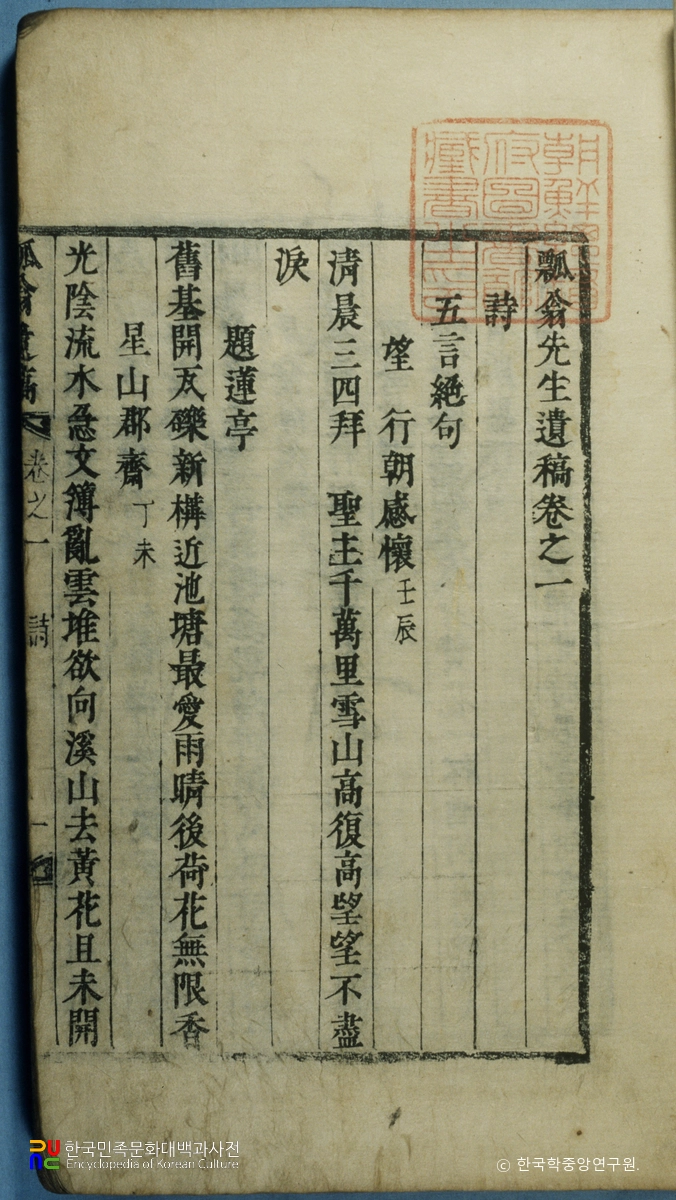 瓢翁先生遺稿卷之一
詩
五言絕句
望 行朝感懷 壬辰
清晨三四拜 聖主千萬里雪山高復高望望不盡
淚
題蓮亭
舊基開瓦礫新構近池塘最愛雨晴後荷花無限香
星山郡齋 丁未
光陰流水急文簿亂雲堆欲向溪山去黃花且未開
瓢翁遺稿 卷之一 詩 一
한국민족문화대백과사전
Encyclopedia of Korean Culture
© 한국학중앙연구원.